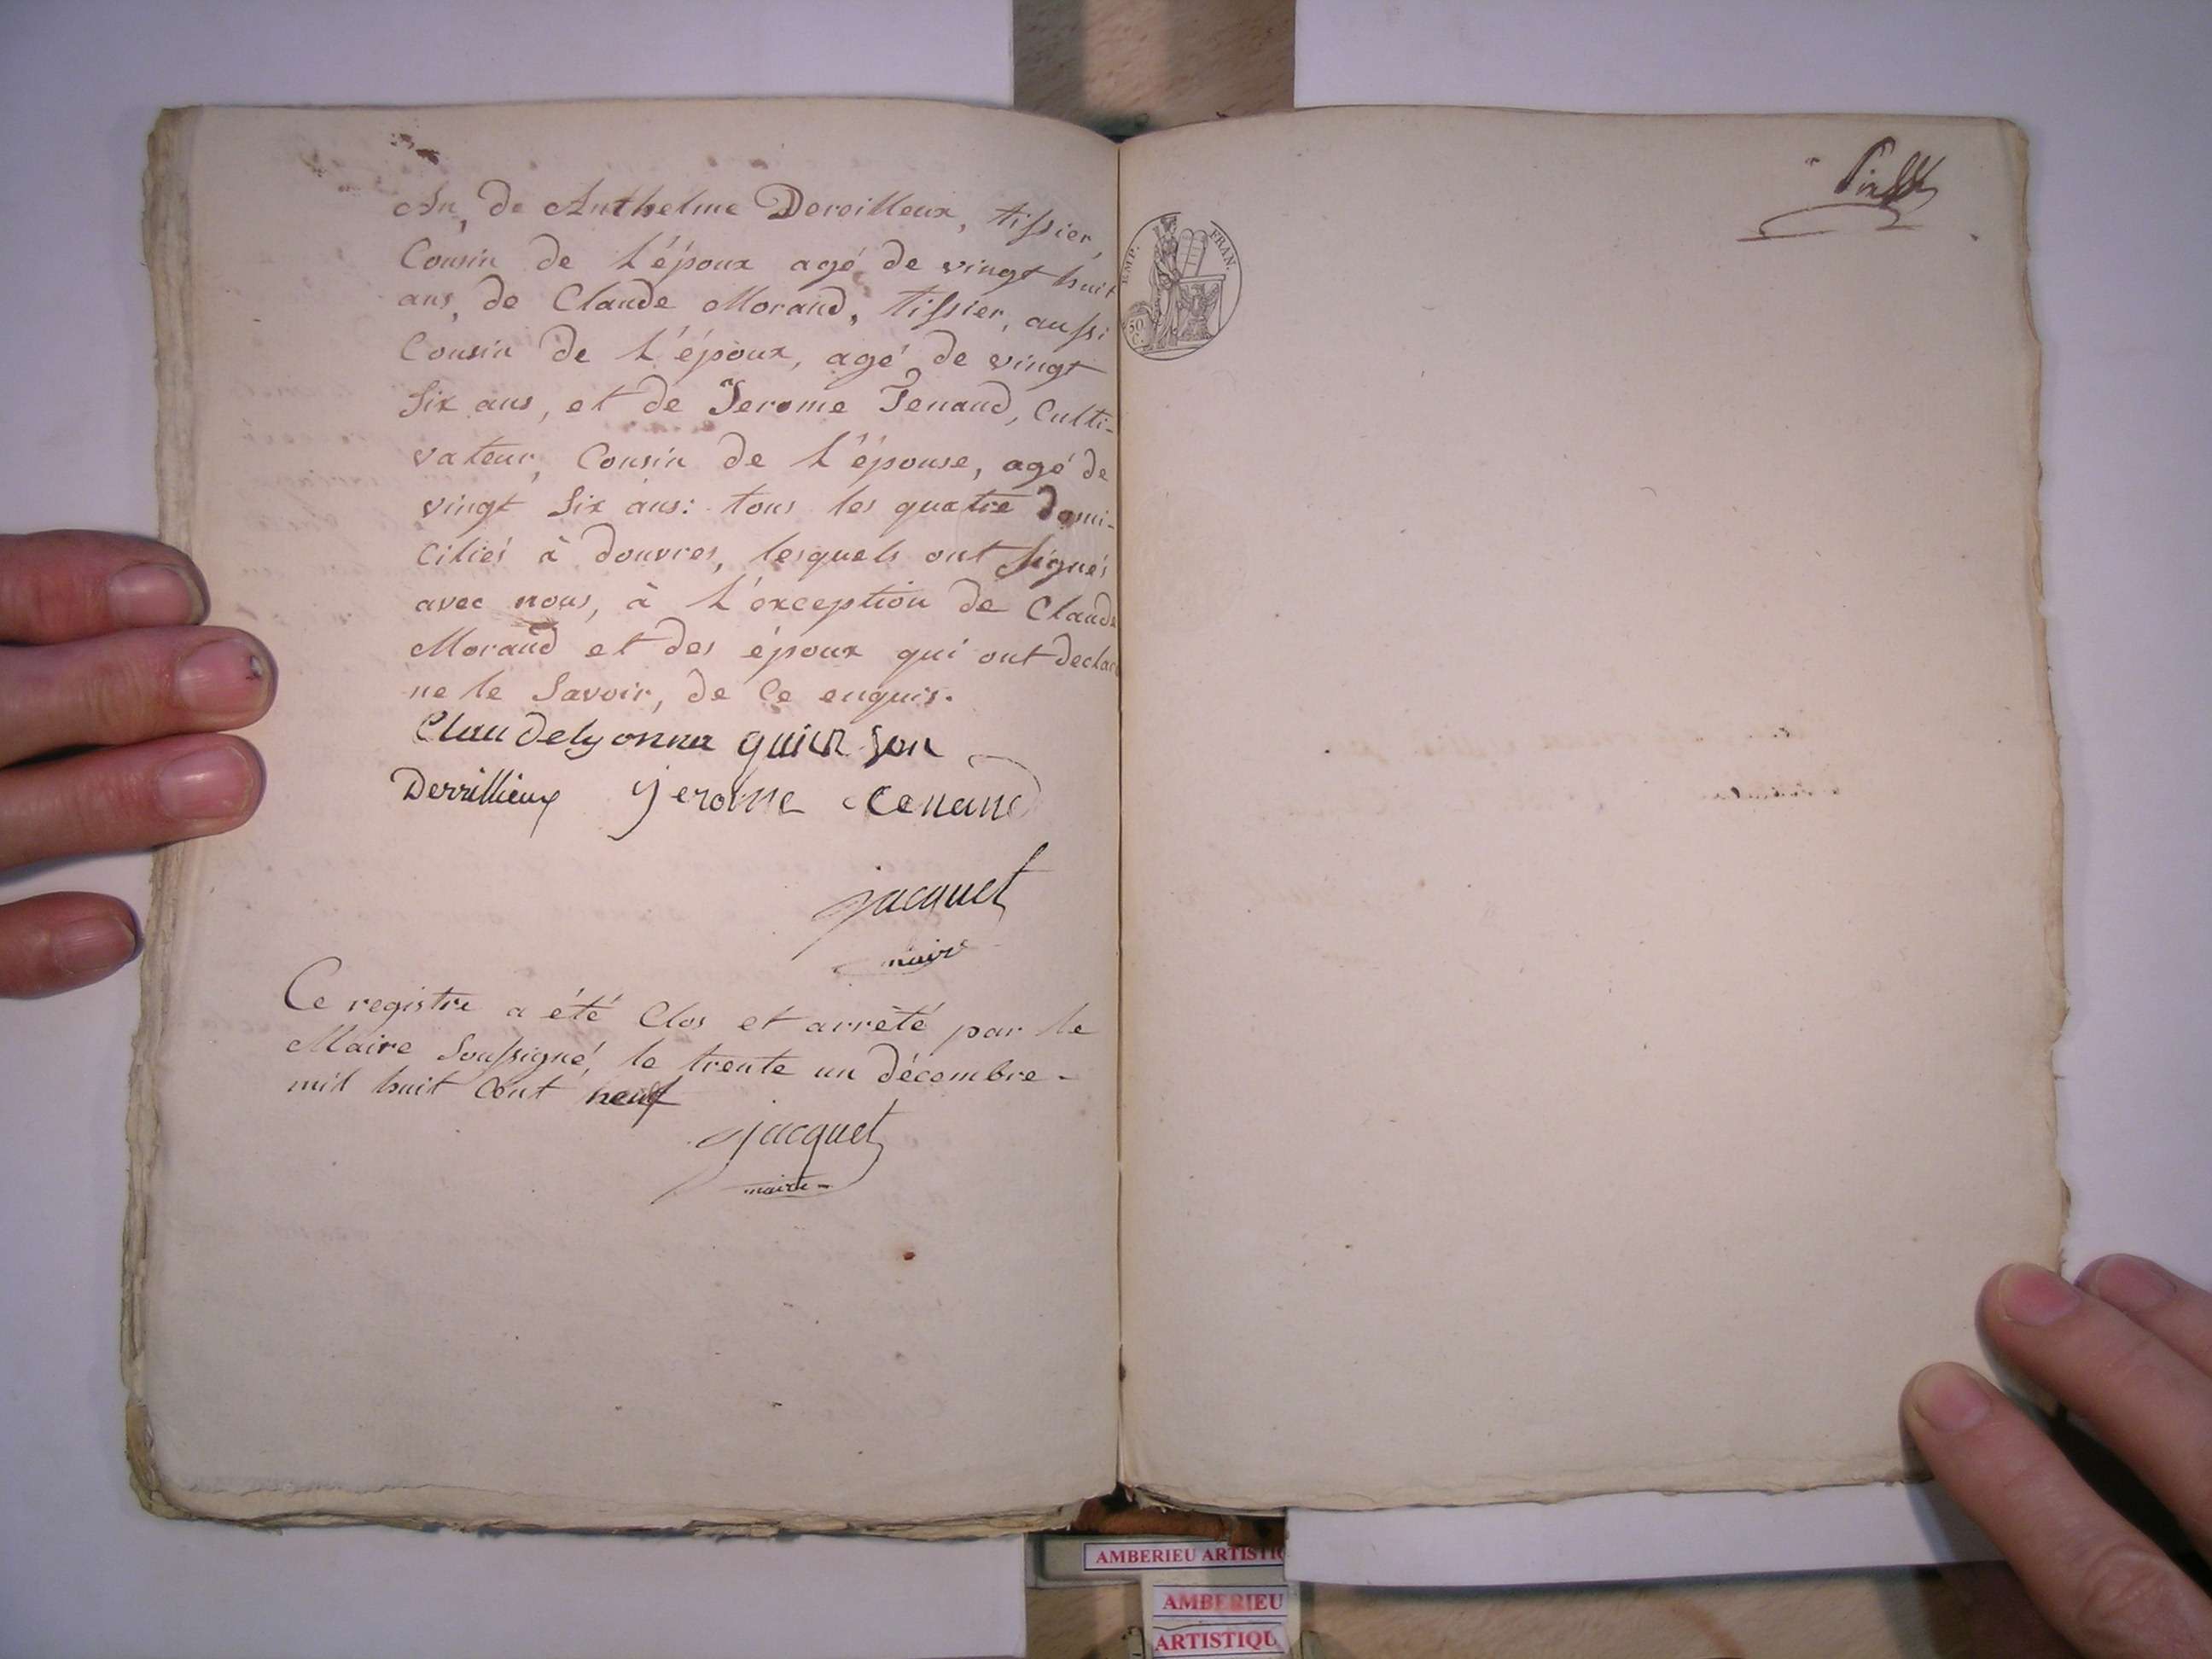 An, de Anthelme Deroilleux, tissier,
Cousin de l'époux agé de vingt huit
ans, de Claude Morand, tissier, aussi
Cousin de l'époux, agé de vingt
Six ans, et de Jerome Tenand, Culti-
vateur, Cousin de l'épouse, agé de
vingt Six ans: tous les quatre domi-
ciliés à douvres, lesquels ont Signés
avec nous, à l'exception de Claude
Morand et des époux qui ont declaré
ne le Savoir, de Ce enquis.
Claudelyonna
Derrillieux jerome tenand
jacquet
maire
Ce registre a été Clos et arrêté par le
Maire Soussigné, le trente un décembre -
mil huit Cent neuf
jacquet
maire -
EMP. FRAN.
50 C.
AMBERIEU ARTISTIQ
AMBERIEU
ARTISTIQU